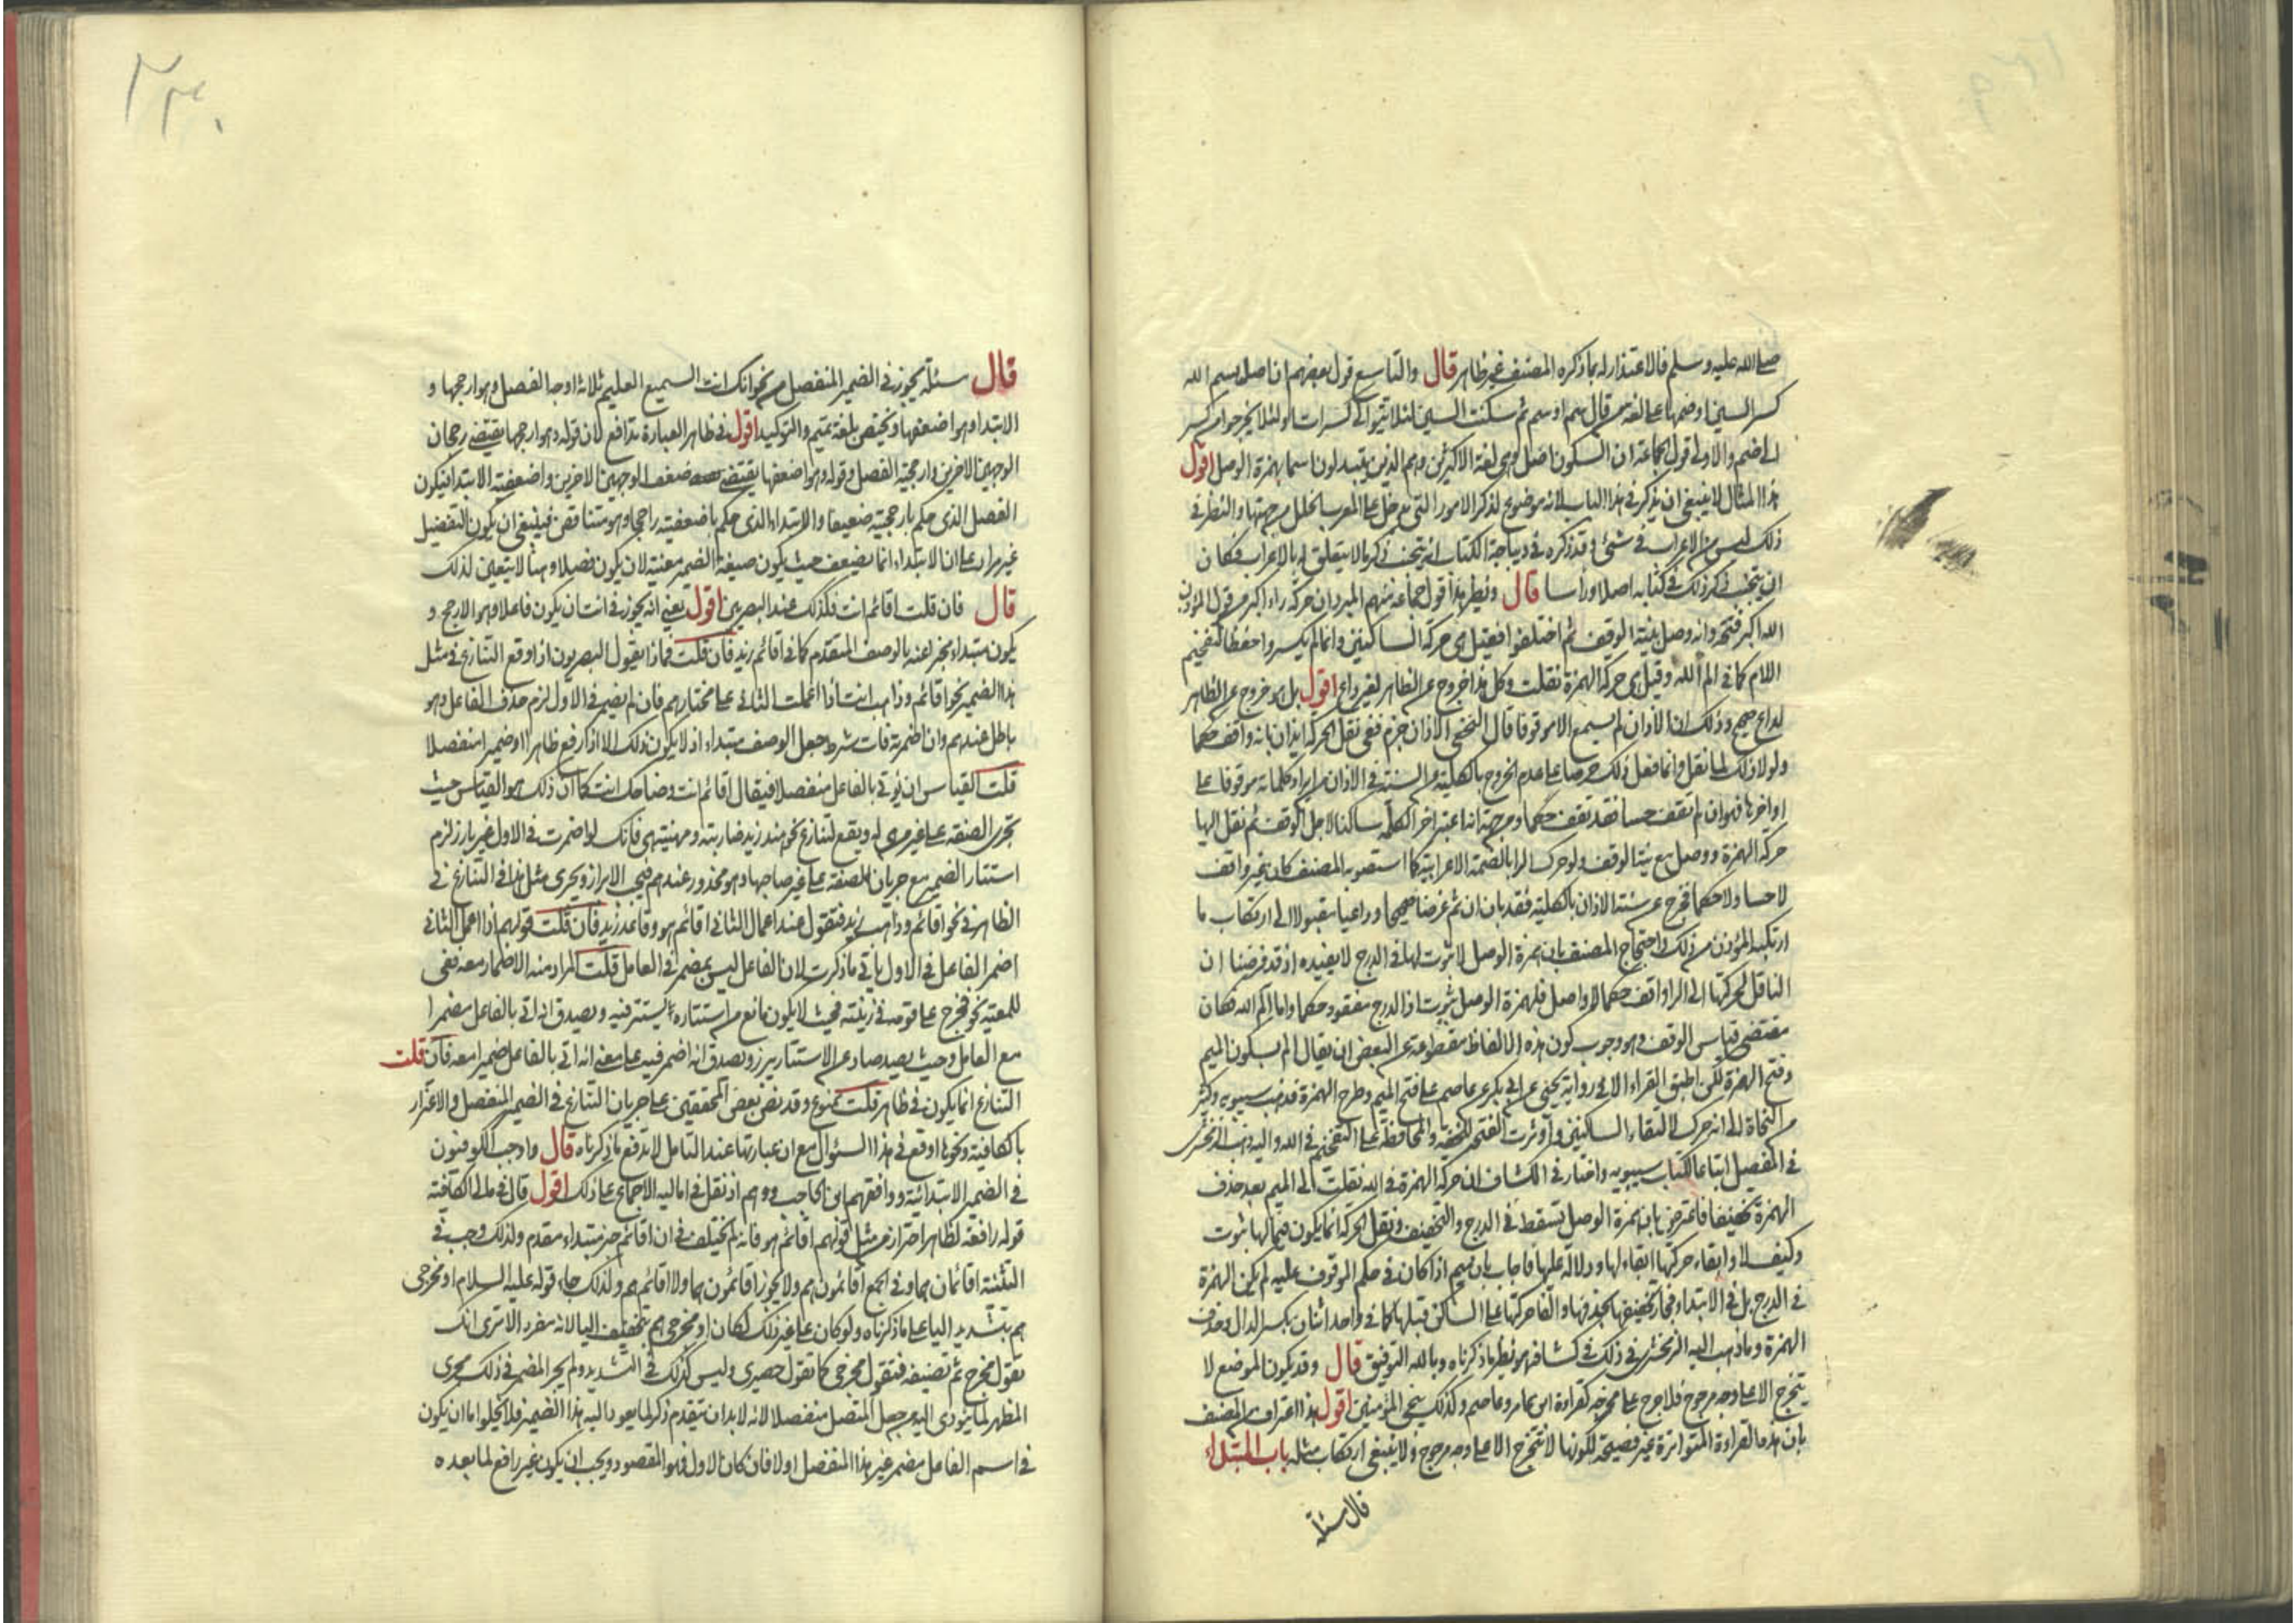 صلى الله عليه وسلم فالاعتذار له بما ذكره المصنف غير ظاهر قال والتاسع قول بعضهم ان اصل بسم الله
كسر السين او ضمها على لغة من قال سم او سم ثم سكنت السين لئلا يتوالى كسرات او لئلا يخرجوا من كسر
الى ضم والاولى قول الجماعة ان السكون اصل وهى لغة الاكثرين وهم الذين يبتدلون اسما بهمزة الوصل اقول
هذا المثال لا ينبغى ان يذكر فى هذا الباب لانه موضوع لذكر الامور التى يدخل على المعرب الخلل من جهتها والنظر فى
ذلك ليس من الاعراب فى شئ وقد ذكره فى ديباجة الكتاب انه يتجنب ذكر ما لا يتعلق به بالاعراب فكان
ان يتجنب ذكر ذلك فى كتابه اصلا وراسا قال ونظير هذا قول جماعة منهم المبرد ان حركة راء اكبر من قول المؤذن
الله اكبر فتحة وانه وصل بنية الوقف ثم اختلفوا فقيل هى حركة الساكنين وانما لم يكسروا حفظا لتفخيم
اللام كما فى الم الله وقيل هى حركة الهمزة نقلت وكل هذا خروج عن الظاهر لغير داع اقول بل هو خروج عن الظاهر
لداع صحيح وذلك ان الاذان لم يسمع الا موقوفا قال النخعى الاذان جزم ففى نقل الحركة ايذان بانه واقف حكما
ولولا ذلك لما نقل وانما فعل ذلك حرصا على عدم الخروج بالكلية من السنة فى الاذان من ايراد كلماته موقوفا على
اواخرها فهو ان لم تقف حسا فقد تقف حكما ومن جهة انا عتبر اخر الكلمة ساكنا لاجل الوقف ثم نقل اليها
حركة الهمزة ووصل مع نية الوقف ولو حرك الرا بالضمة الاعرابية كما استصوبه المصنف كان غير واقف
لا حسا ولا حكما فخرج عن سنة الاذان بالكلية فقد بان ان ثم غرضا صحيحا وداعيا مقبولا الى ارتكاب ما
ارتكبه المؤذن من ذلك واحتجاج المصنف بان همزة الوصل لا ثبوت لها فى الدرج لا يفيده اذ قد فرضنا ان
الناقل لحركتها الى الرا واقف حكما لا واصل فلهمزة الوصل ثبوت اذ الدرج مفقود حكما واما الم الله فكان
مقتضى قياس الوقف وهو وجوب كون هذه الالفاظ مقطوعة عن البعض ان يقال الم بسكون الميم
وفتح الهمزة لكن اطبق القراء الا فى رواية يحيى عن ابى بكر عن عاصم على فتح الميم وطرح الهمزة فذهب سيبويه وكثير
من النحاة الى انه حرك لالتقاء الساكنين وآوثرت الفتح للخفة والمحافظة على التفخيم فى الله واليه ذهب الزمخشرى
فى المفصل اتباعا لكتاب سيبويه واختار فى الكشاف ان حركة الهمزة فى الله نقلت الى الميم بعد حذف
الهمزة تخفيفا فاعترض بان همزة الوصل تسقط فى الدرج والتخفيف ونقل الحركة انما يكون فيما لها ثبوت
وكيف لا وابقاء حركتها ابقاء لها ودلالة عليها فاجاب بان ميم اذا كان فى حكم الموقوف عليه لم يكن الهمزة
فى الدرج بل فى الابتداء فجاز تخفيفها بحذفها والقا حركتها على الساكن قبلها كما فى واحد اثنان بكسر الدال وحذف
الهمزة وما ذهب اليه الزمخشرى فى ذلك فى كشافه هو نظير ما ذكرناه وبالله التوفيق قال وقد يكون الموضع لا
يتخرج الا على وجه مرجوح فلا حرج على مخرجه كقراءة ابن عامر وعاصم وكذلك نجى المؤمنين اقول هذا اعتراف من المصنف
بان هذه القراءة المتواترة غير فصيحة لكونها لا تتخرج الا على وجه مرجوح ولا ينبغى ارتكاب مثله باب المبتدأ
قال مسئلة
٢٣٠
قال مسئلة يجوز فى الضمير المنفصل من نحو انك انت السميع العليم ثلاثة اوجه الفصل وهو ارجحها و
الابتدا وهو اضعفها ويختص بلغة تميم والتوكيد اقول فى ظاهر العبارة تدافع لان قوله وهو ارجحها يقتضى رجحان
الوجهين الاخرين وارجحية الفصل وقوله وهو اضعفها يقتضى ضعف الوجهين الاخرين واضعفية الابتدا فيكون
الفصل الذى حكم بارجحيته ضعيفا والابتداء الذى حكم باضعفيته راجحا وهو متناقض فينبغى ان يكون التفضيل
غير مراد على ان الابتداء انما يضعف حيث يكون صيغة الضمير معينة لان يكون فصيلا وهنا لا يتعين لذلك
قال فان قلت اقائم انت فكذلك عند البصريين اقول يعنى انه يجوز فى انت ان يكون فاعلا وهو الارجح و
يكون مبتداء مخبرا عنه بالوصف المتقدم كما فى اقائم زيد فان قلت فماذا يقول البصريون اذا وقع التنازع فى مثل
هذا الضمير نحو اقائم وذاهب انت اذا اعملت الثانى على مختارهم فان لم يضمر فى الاول لزم حذف الفاعل وهو
باطل عندهم وان اضمرته فات شرط جعل الوصف مبتداء اذ لا يكون ذلك الا اذا رفع ظاهرا او ضميرا منفصلا
قلت القياس ان يؤتى بالفاعل منفصلا فيقال اقائم انت وضاحك انت كما ان ذلك هو القياس حيث
تجرى الصفة على غير من هى له ويقع التنازع نحو هند زيد ضاربته ومهينته هى فانك لو اضمرت فى الاول غير بارز لزم
استتار الضمير مع جريان الصفة على غير صاحبها وهو محذور عندهم فيجب الابراز ويجرى مثل هذا فى التنازع فى
الظاهر فى نحو اقائم وذاهب زيد فتقول عند اعمال الثانى اقائم هو وقاعد زيد فان قلت قولهم اذا اعمل الثانى
اضمر الفاعل فى الاول يابى ما ذكرت لان الفاعل ليس بمضمر فى العامل قلت المراد منه الاضمار معه ففى
للمعية نحو فخرج على قومه فى زينته فحيث لا يكون مانع من استتاره يستتر فيه ويصدق انه اتى بالفاعل مضمرا
مع العامل وحيث يصد صاد عن الاستتار يبرز ويصدق انه اضمر فيه على معنى انه اتى بالفاعل ضميرا معه فان قلت
التنازع انما يكون فى ظاهر قلت ممنوع وقد نص بعض المحققين على جريان التنازع فى الضمير المنفصل والاغترار
بالكافية ونحوها اوقع فى هذا السئوال مع ان عبارتها عند التامل لا تدفع ما ذكرناه قال واوجب الكوفيون
فى الضمير الابتدائية ووافقهم ابن الحاجب ووهم اذ نقل فى اماليه الاجماع على ذلك اقول قال فى امالى الكافية
قوله رافعة لظاهر احتراز من مثل قولهم اقائم هو فانه لم يختلف فى ان اقائم خبر مبتداء مقدم ولذلك وجب فى
التثنية اقائمان هما وفى الجمع اقائمون هم ولا يجوز اقائمون هما ولا اقائم هم ولذلك جاء قوله عليه السلام او مخرجى
هم بتشديد اليا على ما ذكرناه ولو كان على غير ذلك لكان او مخرجى هم بتخفيف اليا لانه مفرد الا ترى انك
تقول مخرج ثم تضيفه فتقول مخرجى كما تقول حصيرى وليس كذلك فى التشديد ولم يجر المضمر فى ذلك مجرى
المظهر لما يؤدى اليه من جعل المتصل منفصلا لانه لا بد ان يتقدم ذكر لما يعود اليه هذا الضمير فلا يخلوا اما ان يكون
فى اسم الفاعل مضمر غير هذا المنفصل اولا فان كان الاول فهو المقصود ويجب ان يكون غير رافع لما بعده